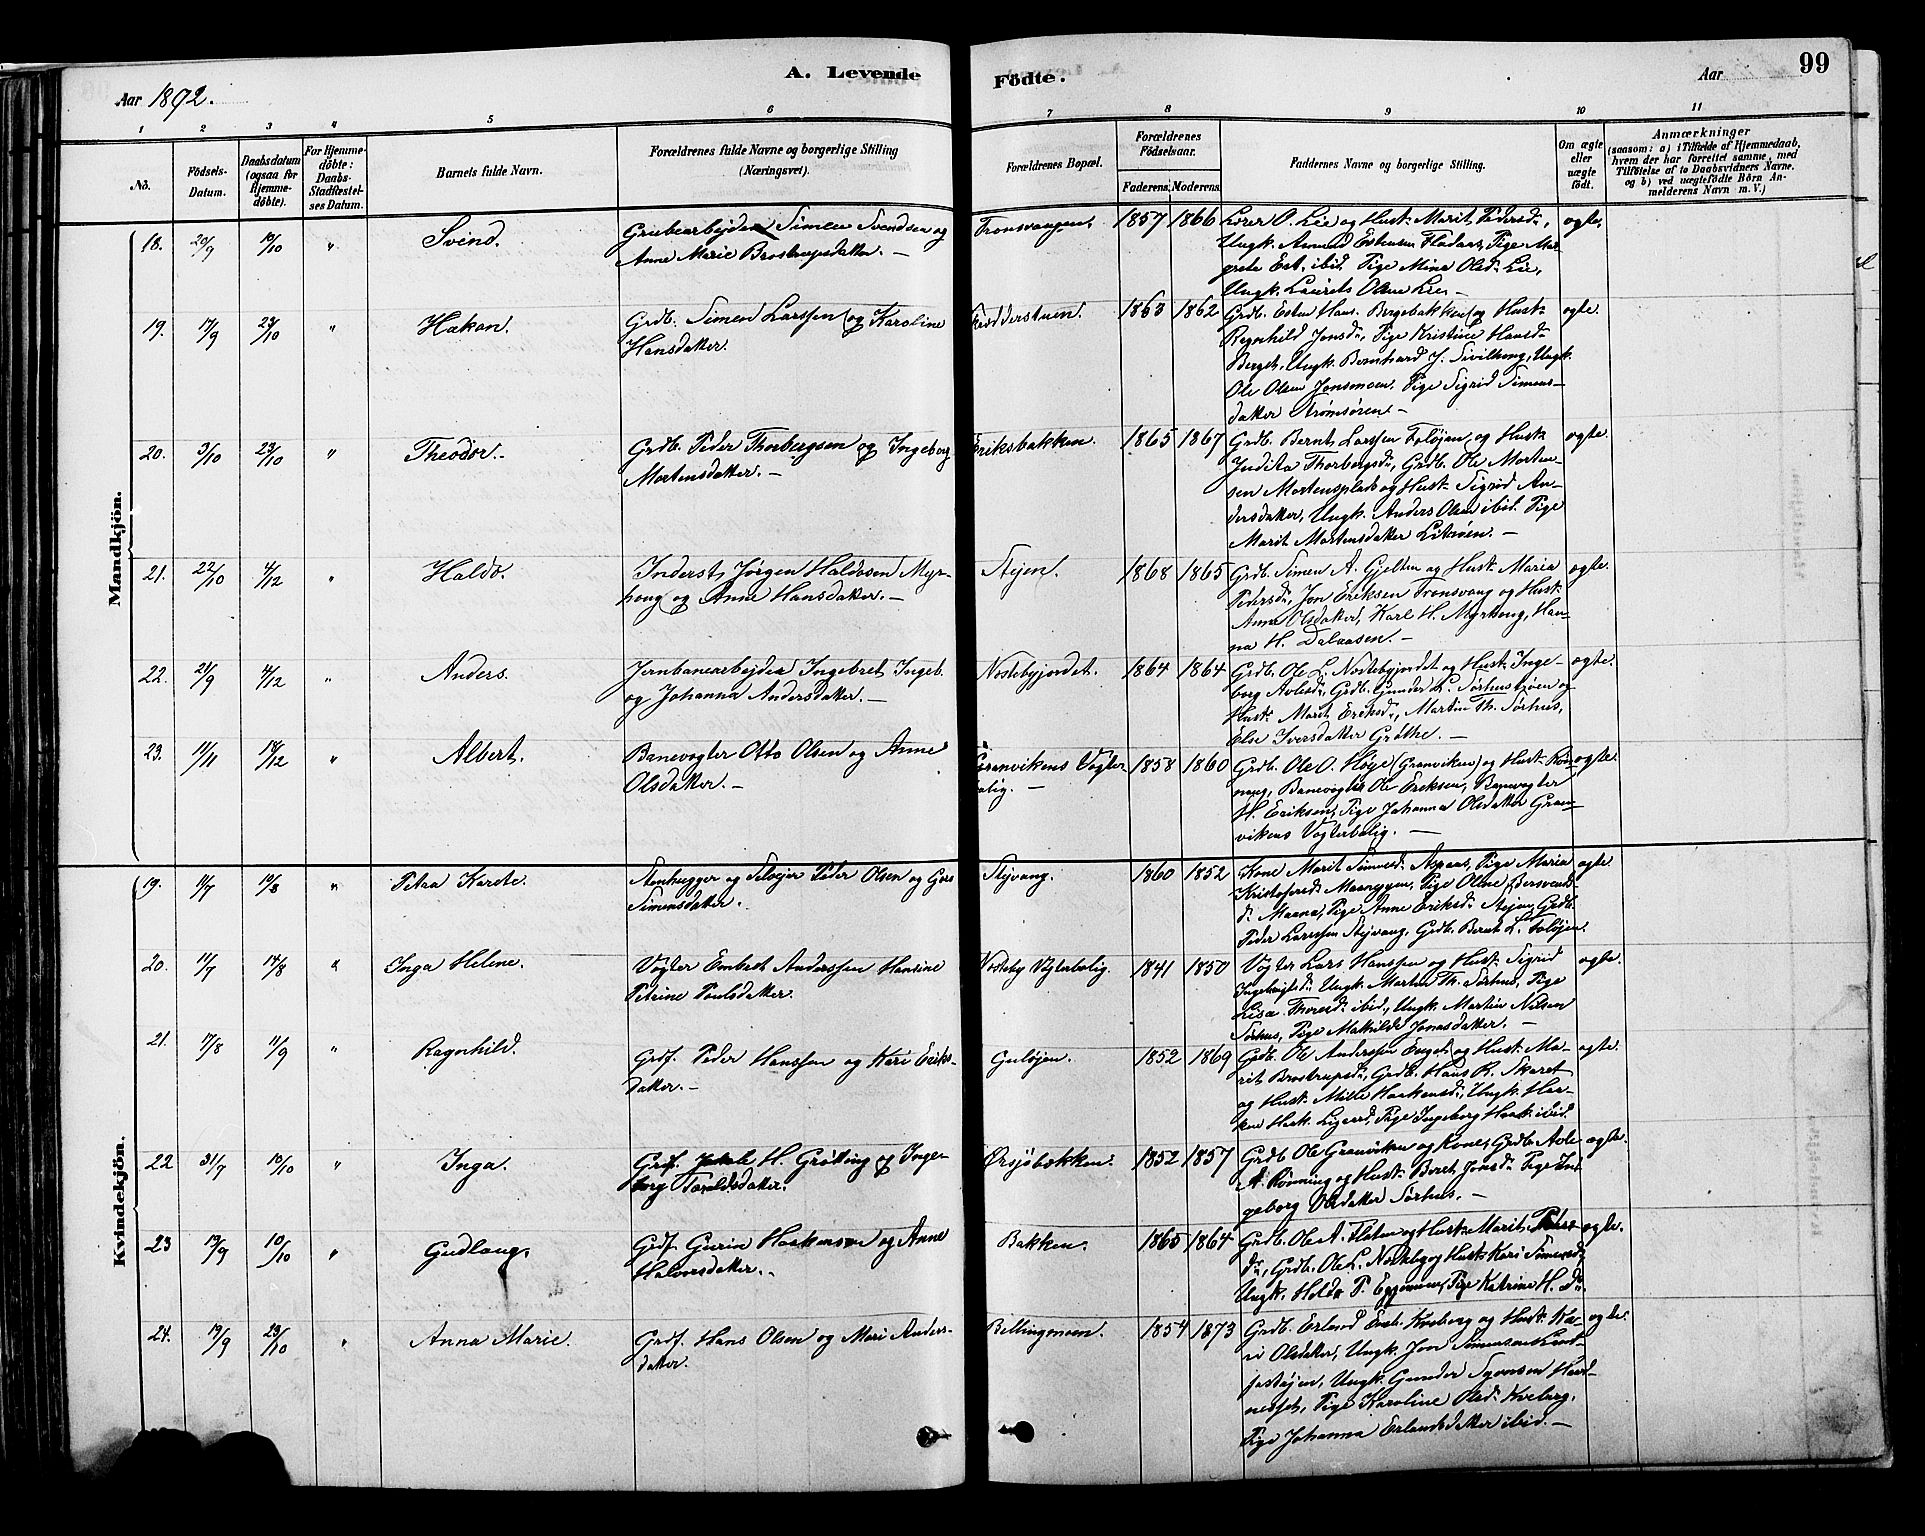 A. Levende
Födte.
Aar
99
Aar 1892.
1 2 3 4 5 6 7 8 9 10 11
No.
Födsels-
Datum.
Daabsdatum
(ogsaa for
Hjemme-
döbte).
For Hjemme-
döbte:
Daabs-
Stadfæstel-
ses Datum.
Barnets fulde Navn.
Forældrenes fulde Navne og borgerlige Stilling
(Næringsvei).
Forældrenes Bopæl.
Forældrenes
Födselsaar.
Faderens. Moderens.
Faddernes Navne og borgerlige Stilling.
Om ægte
eller
uægte
födt.
Anmærkninger
(saasom: a) i Tilfælde af Hjemmedaab,
hvem der har forrettet samme, med
Tilföielse af to Daabsvidners Navne,
og b) ved uægtefödte Börn An-
melderens Navn m. V.)
Mandkjön.
18. 20/9 10/10 " Svend. Grubearbejder Simen Svendsen og
Anne Marie Brostrupsdatter. — Tronsvangen. 1857 1866 Lærer O. Lie og Hust. Marit Pedersd.,
ægte.
Ungk. Amund Estensen Fladaas, Pige Mar-
grete Est. ibid. Pige Mina Olsd. Lie,
Ungk. Laurits Olsen Lie. —
19. 17/9 23/10 " Hakon. Grdb. Simen Larssen og Karoline
Hansdatter. 1863 1862 Grdb. Esten Hans. Bergebakken og Hust. ægte.
Ragnhild Jonsd., Pige Kristine Hansd.
Berget, Ungk. Bernhard J. Sivilhaug, Ungk.
Ole Olsen Jonsmoen. Pige Sigrid Simens-
datter Strømsøren. —
20. 3/10 23/10 " Theodor. — Grdb. Peder Thorbergsen og Ingeborg
Mortensdatter. — Eriksbakken. 1865 1867 Grdb. Bernt Larssen Foløjen og Hust. ægte.
Indita Thorbergsd., Grdb. Ole Morten-
sen Mortensplads og Hust. Sigrid An-
dersdatter, Ungk. Anders Olsen ibid. Pige
Marit Mortensdatter Litmoen. —
21. 22/10 4/12 " Haldo. Inderst Jørgen Haldosen Myr-
haug og Anne Hansdatter. — Stejen. 1868 1865 Grdb. Simen A. Gjelten og Hust. Maria ægte.
Pedersd., Jon Eriksen Tronsvang og Hust.
Anne Olsdatter, Karl H. Myrhaug, Han-
na H. Dalaasen. —
22. 21/9 4/12 " Anders. Jernbanearbejder Ingebret Ingeb.
og Johanna Andersdatter. — Nostebyjordet. 1864 1864 Grdb. Ole L. Nostebyjordet og Hust. Inge- ægte.
borg Avlesd., Grdb. Gunder L. Sørhustrøen og
Hust. Marit Eriksd., Martin Th. Sørhus,
Else Iversdatter Grøthe. —
23. 11/11 18/12 " Albert. Banevogter Otto Olsen og Anne
Olsdatter. — Granvikens Vogter-
bolig. — 1858 1860 Grdb. Ole O. Høge (Granviken) og Hust. Røn- ægte.
naug, Banevogter Ole Eriksen, Banevogter
H. Eriksen, Pige Johanna Olsdatter Gran-
vikens Vogterbolig. —
Kvindekjön.
19. 11/7 10/8 " Petra Kærste. Stenhugger og Selvejer Peder Olsen og Guro
Simensdatter. Stejvang. 1860 1852 Kone Marit Simensd. Aspaas, Pige Maria ægte.
Kristofersd. Maanyyen, Pige Oline Bersvend-
d. Maana, Pige Anne Eriksd. Stejen, Grdb.
Peder Larssen Stejvang, Grdb. Bernt L. Foløjen.
20. 11/7 14/8 " Inga Helene. Vogter Embret Anderssen Hansine
Petrine Poulsdatter. Nosteby Vogterbolig. 1841 1850 Vogter Lars Hanssen og Hust. Sigrid ægte.
Ungk. Morten Th. Sørhus, Pige
Lisa Thoresd. ibid., Ungk. Martin Nilsen
Sørhus, Pige Mathilde Jonasdatter. —
21. 17/8 11/9 " Ragnhild. Grdf. Peder Hanssen og Kari Eriks-
datter. — Guløjen. 1852 1869 Grdb. Ole Anderssen Enget og Hust. Ma- ægte.
rit Brostrupsd., Grdb. Hans R. Skaret
og Hust. Mille Haakensd., Ungk. Haa-
ken Haak. Ligaard, Pige Ingeborg Haak. ibid.
22 31/7 10/10 " Inga. Grdf. H. Grøtting og Inge-
borg Taraldsdatter. Ørsjøbækken. 1852 1857 Grdb. Ole Granviken og Kone, Grdb. Avle ægte.
A. Rønning og Hust. Beret Jonsd. Pige In-
geborg Olsdatter Sørhus. —
23 19/9 10/10 " Gudlaug. Grdf. Gurin Haakensen og Anne
Halvorsdatter. — Bakken. 1865 1864 Grdb. Ole A. Floten og Hust. Marit Peders- ægte.
d., Grdb. Ole L. Nosteby og Hust. Kari Simensd.
Ungk. Haldo P. Eggemoen, Pige Katrine H. d.
24. 19/9 23/10 " Anna Marie. Grdf. Hans Olsen og Mari Anders-
datter. Bellingmoen. 1854 1873 Grdb. Erland Emb. Kveberg og Hust. Ka- ægte.
ri Olsdatter, Ungk. Jon Simensen
Ungk. Gunder Syvertsen
Pige Karoline Olsd. Kveberg,
Pige Johanna Erlandsdatter ibid. —